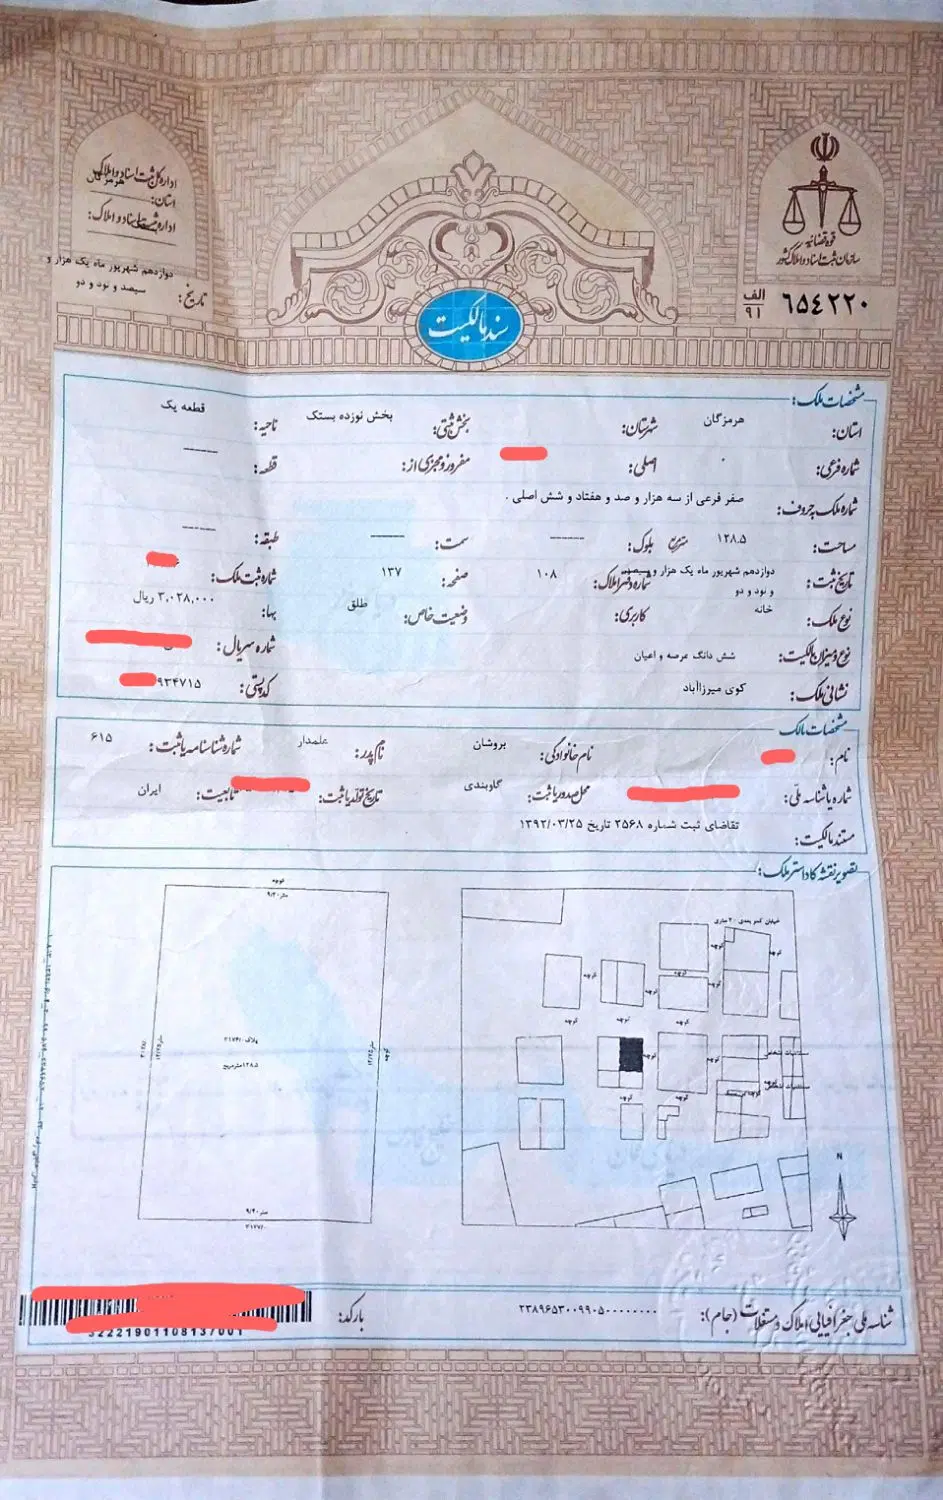 اداره کل ثبت اسناد و املاک
استان: هرمزگان
اداره ثبت اسناد و املاک:
تاریخ: دوازدهم شهریور ماه یک هزار و
سیصد و نود و دو
قوه قضائیه
سازمان ثبت اسناد و املاک کشور
۶۵۴۲۲۰ الف
۹۱
سند مالکیت
مشخصات ملک:
استان: هرمزگان شهرستان: بخش ثبتی: بخش نوزده بستک ناحیه: قطعه یک
شماره فرعی: ۰ اصلی: مفروز و مجزی از: قطعه: ------
شماره ملک به حروف: صفر فرعی از سه هزار و صد و هفتاد و شش اصلی .
مساحت: ۱۲۸.۵ متر مربع بلوک: ------ سمت: ------ طبقه: ------
تاریخ ثبت: دوازدهم شهریور ماه یک هزار و سیصد و نود و دو شماره دفتر املاک: ۱۰۸ صفحه: ۱۳۷ شماره ثبت ملک:
نوع ملک: خانه کاربری: وضعیت خاص: طلق بها: ۳,۰۲۸,۰۰۰ ریال
نوع و میزان مالکیت: شش دانگ عرصه و اعیان شماره سریال:
نشانی ملک: کوی میرزاآباد کدپستی: ۹۳۴۷۱۵
مشخصات مالک
نام: نام خانوادگی: بروشان نام پدر: علمدار شماره شناسنامه یا ثبت: ۶۱۵
شماره یا شناسه ملی: محل صدور یا ثبت: گاوبندی تاریخ تولد یا ثبت: تابعیت: ایران
مستند مالکیت: تقاضای ثبت شماره ۲۵۶۸ تاریخ ۱۳۹۲/۰۳/۲۵
تصویر نقشه کاداستر ملک:
کوچه
۹/۲۰ متر
پلاک ۳۱۷۶/۰
۱۲۸.۵ مترمربع
کوچه
متر ۹/۴۰
۳۱۷۷/۰
خیابان کمربندی ۲۰ متری
کوچه
کوچه
کوچه
کوچه
کوچه
کوچه
کوچه
کوچه
کوچه
کوچه
کوچه
کوچه
N
شناسه ملی جغرافیایی املاک و مستغلات (جام): ۲۳۸۹۶۵۳۰۰۹۹۰۵۰۰۰۰۰۰۰۰۰
بارکد:
32221901108137001